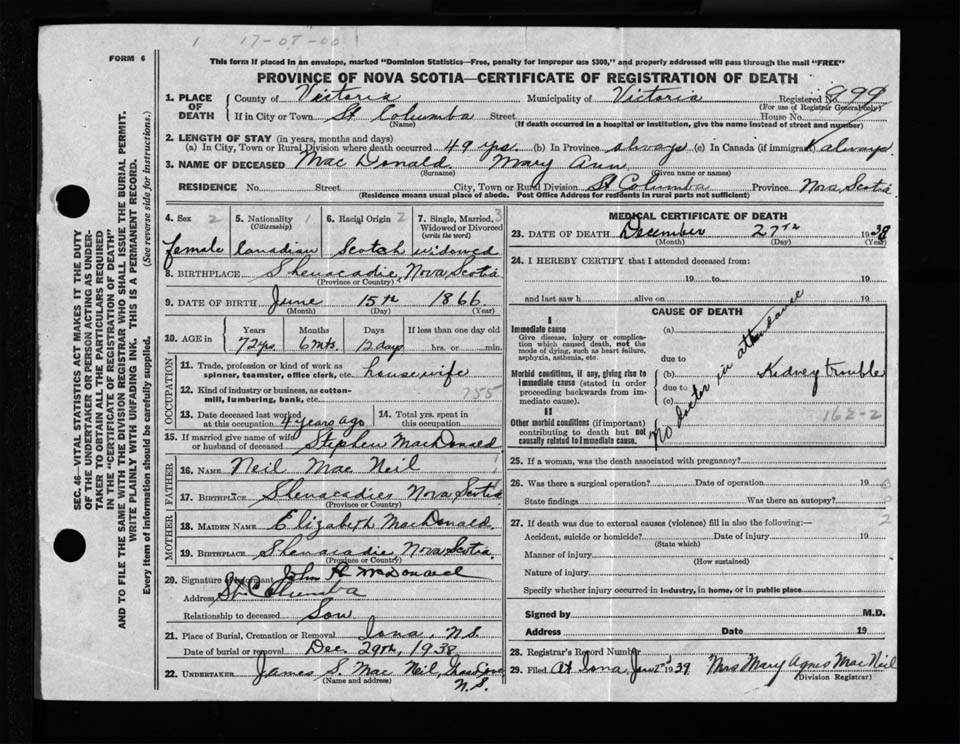 1 17-08-00 1
FORM 6
This form if placed in an envelope, marked "Dominion Statistics—Free, penalty for improper use $300," and properly addressed will pass through the mail "FREE"
PROVINCE OF NOVA SCOTIA—CERTIFICATE OF REGISTRATION OF DEATH
1. PLACE OF DEATH County of Victoria Municipality of Victoria Registered No. 899
(For use of Registrar General only)
If in City or Town St Columba Street House No.
(Name) (If death occurred in a hospital or institution, give the name instead of street and number)
2. LENGTH OF STAY (in years, months and days)
(a) In City, Town or Rural Division where death occurred 49 yrs. (b) In Province always (c) In Canada (if immigrant) always.
3. NAME OF DECEASED Mac Donald Mary Ann
(Surname) (Given name or names)
RESIDENCE No. Street City, Town or Rural Division St Columba Province Nova Scotia
(Residence means usual place of abode. Post Office Address for residents in rural parts not sufficient)
4. Sex 2 5. Nationality 1 6. Racial Origin 2 7. Single, Married, 3
(Citizenship) Widowed or Divorced
(write the word)
female Canadian Scotch widowed
8. BIRTHPLACE Shenacadie, Nova Scotia
(Province or Country)
9. DATE OF BIRTH June 15th 1866
(Month) (Day) (Year)
10. AGE in Years Months Days If less than one day old
72 yrs. 6 mts. 12 days hrs. or min.
OCCUPATION
11. Trade, profession or kind of work as
spinner, teamster, office clerk, etc. housewife
12. Kind of industry or business, as cotton-
mill, lumbering, bank, etc. 755
13. Date deceased last worked
at this occupation 4 years ago
14. Total yrs. spent in
this occupation
15. If married give name of wife
or husband of deceased Stephen MacDonald
FATHER
16. NAME Neil Mac Neil
17. BIRTHPLACE Shenacadies Nova Scotia
(Province or Country)
MOTHER
18. MAIDEN NAME Elizabeth MacDonald.
19. BIRTHPLACE Shenacadie, Nova Scotia.
(Province or Country)
20. Signature of informant John R McDonald
Address St Columba
Relationship to deceased Son
21. Place of Burial, Cremation or Removal Iona, N.S.
Date of burial or removal Dec. 29th, 1938
22. UNDERTAKER James S. Mac Neil,
N.S.
(Name and address)
MEDICAL CERTIFICATE OF DEATH
23. DATE OF DEATH December 27th 1938
(Month) (Day) (Year)
24. I HEREBY CERTIFY that I attended deceased from:
19 to 19
and last saw h alive on 19
CAUSE OF DEATH
I
Immediate cause
Give disease, injury or complica-
tion which caused death, not the
mode of dying, such as heart failure,
asphyxia, asthenia, etc.
(a)
due to
Morbid conditions, if any, giving rise to
immediate cause (stated in order
proceeding backwards from im-
mediate cause).
(b) Kidney trouble
due to
(c)
No doctor in attendance
162-2
II
Other morbid conditions (if important)
contributing to death but not
causally related to immediate cause.
25. If a woman, was the death associated with pregnancy?
26. Was there a surgical operation? Date of operation 19
State findings Was there an autopsy?
27. If death was due to external causes (violence) fill in also the following:— 2
Accident, suicide or homicide? Date of injury 19
(State which)
Manner of injury
(How sustained)
Nature of injury
Specify whether injury occurred in industry, in home, or in public place
Signed by M.D.
Address Date 19
28. Registrar's Record Number
29. Filed At Iona, Jan 1939 Mrs Mary Agnes MacNeil
(Division Registrar)
SEC. 46—VITAL STATISTICS ACT MAKES IT THE DUTY
OF THE UNDERTAKER OR PERSON ACTING AS UNDER-
TAKER TO OBTAIN ALL THE PARTICULARS REQUIRED
IN THE "CERTIFICATE OF REGISTRATION OF DEATH"
AND TO FILE THE SAME WITH THE DIVISION REGISTRAR WHO SHALL ISSUE THE BURIAL PERMIT.
WRITE PLAINLY WITH UNFADING INK. THIS IS A PERMANENT RECORD.
Every item of information should be carefully supplied. (See reverse side for instructions.)